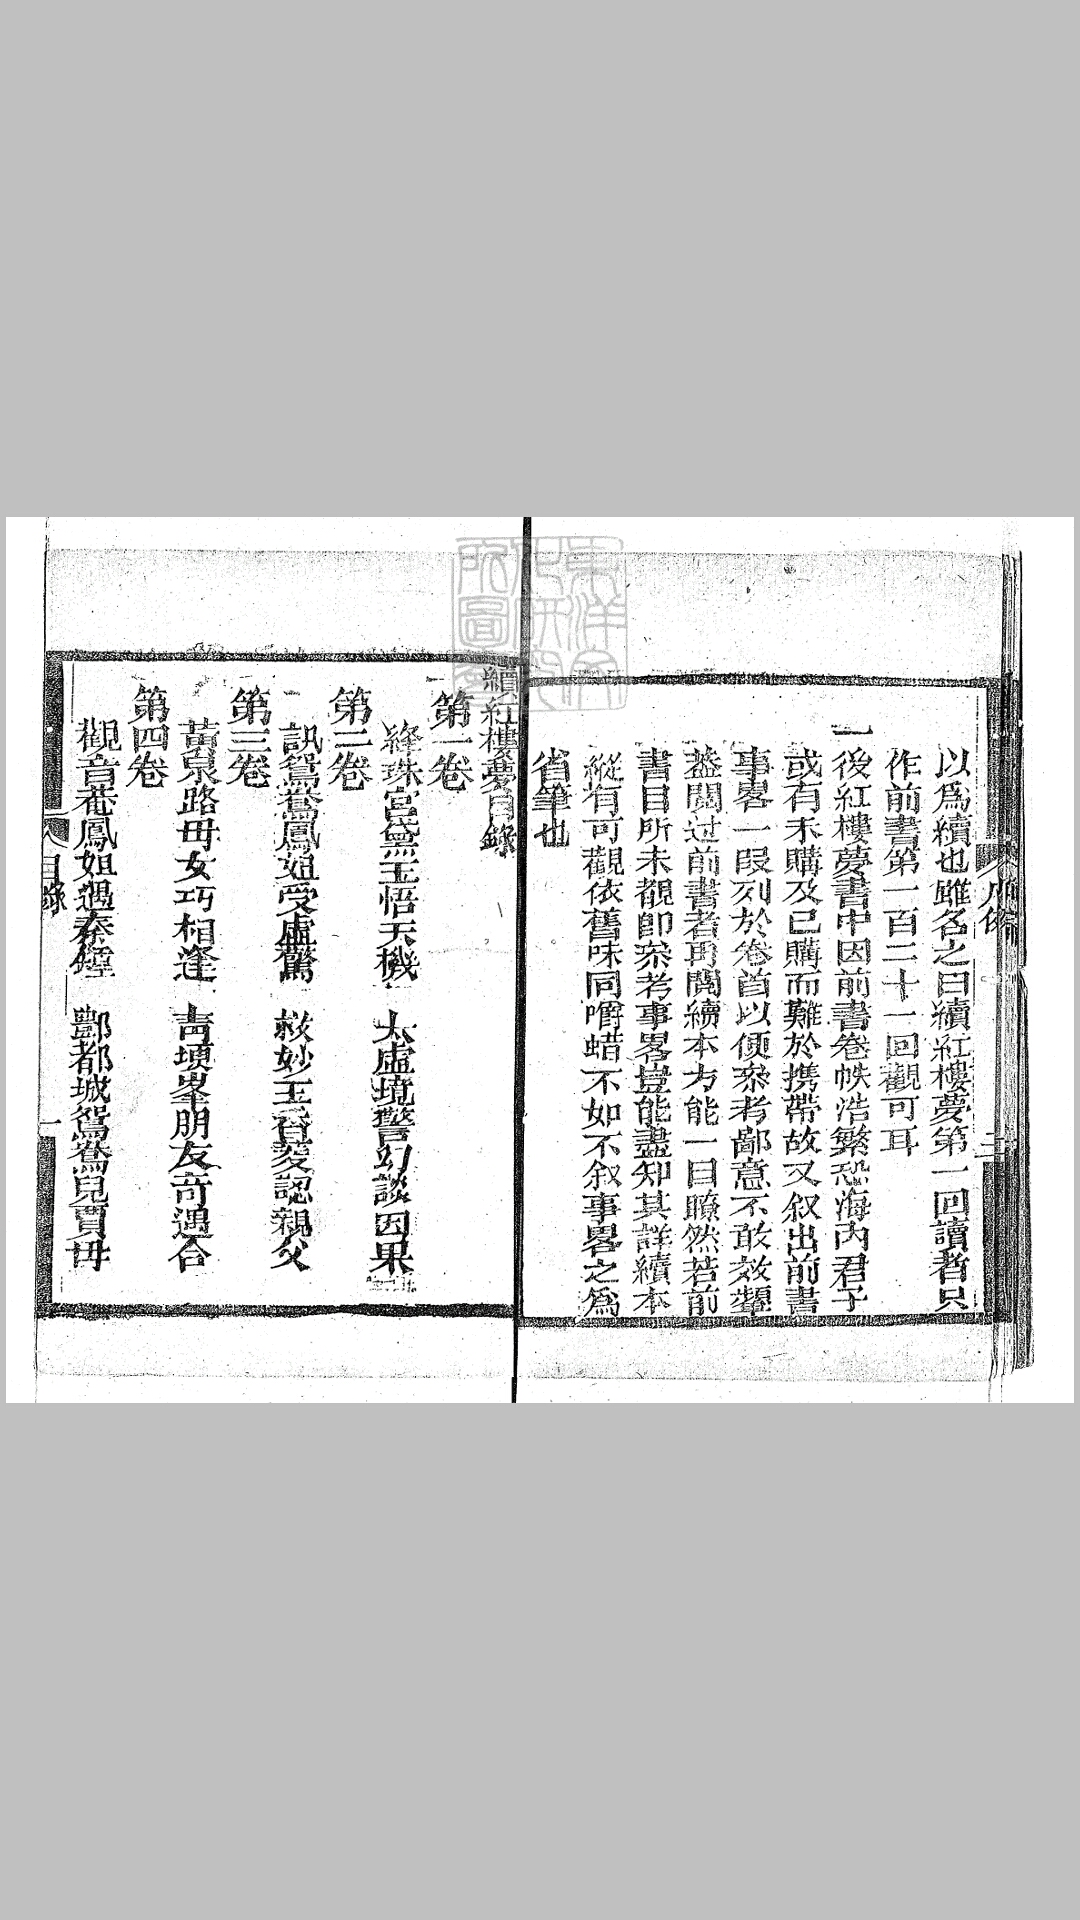 以爲續也雖名之曰續紅樓夢第一回讀者只
作前書第一百二十一回觀可耳
一後紅樓夢書中因前書卷帙浩繁恐海內君子
或有未購及已購而難於携帶故又叙出前書
事畧一段列於卷首以便叅考鄙意不敢效顰
葢閱过前書者再閱續本方能一目瞭然若前
書目所未覩卽叅考事畧豈能盡知其詳續本
縱有可觀依舊味同嚼蜡不如不叙事畧之爲
省筆也
凡例
二
續紅樓夢目錄
第一卷
絳珠宮黛玉悟天機 太虛境警幻談因果
第二卷
訊鴛鴦鳳姐受虛驚 救妙玉香菱認親父
第三卷
黃泉路母女巧相逢 靑埂峯朋友奇遇合
第四卷
觀音菴鳳姐遇秦鐘 酆都城鴛鴦見賈母
目錄
一